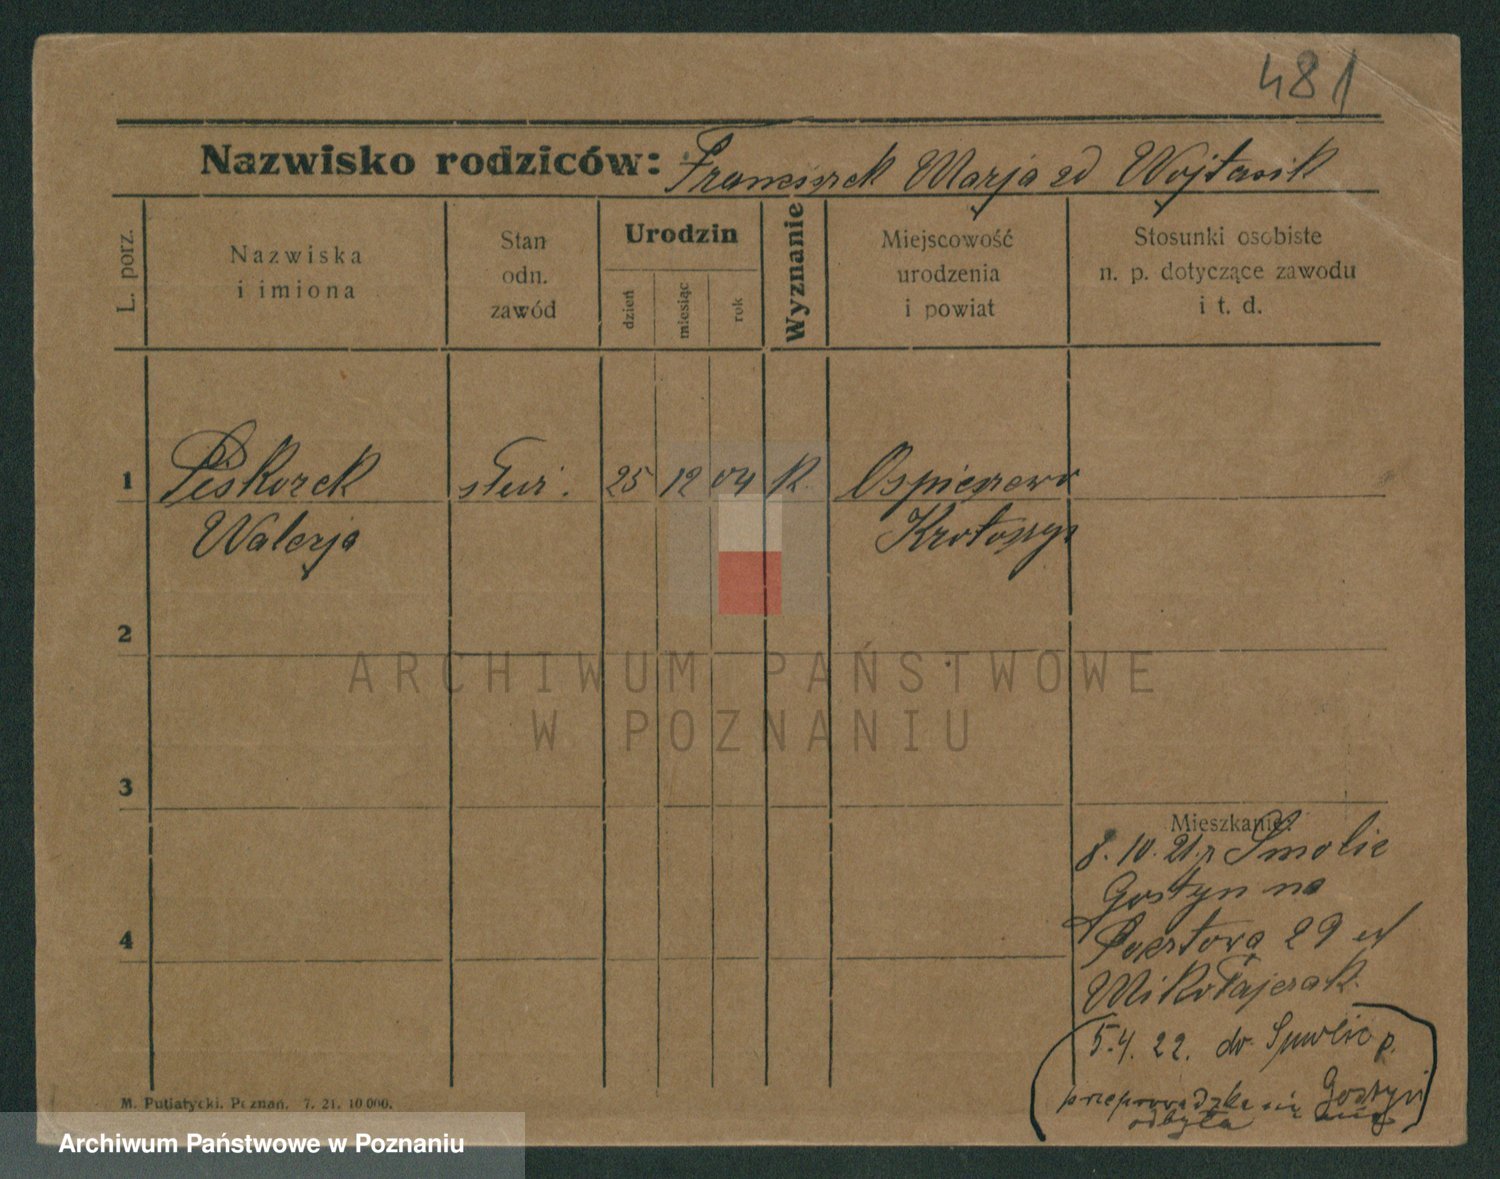 481
Nazwisko rodziców: Franciszek Marja zd Wojtasik
L. porz.
Nazwiska
i imiona
Stan
odn.
zawód
Urodzin
dzień
miesiąc
rok
Wyznanie
Miejscowość
urodzenia
i powiat
Stosunki osobiste
n. p. dotyczące zawodu
i t. d.
1 Piskorek służ. 25 12 04 K.
Walerja Krotoszyn
2
ARCHIWUM PAŃSTWOWE
W POZNANIU
3
Mieszkanie:
8. 10. 21. p Smolic
Gostyn na
4
Pocztową 29 u
Mikołajczak.
5.4. 22. do Smolic p.
Gostyń
przeprowadzka się nie
odbyła
M. Putiatycki. Poznań. 7. 21. 10 000.
Archiwum Państwowe w Poznaniu